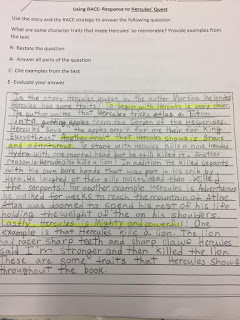 Using RACE: Response to Hercules' Quest
Use the story and the RACE strategy to answer the following question.
What are some character traits that make Hercules' so memorable? Provide examples from
the text.
R- Restate the question
A- Answer all parts of the question
C- Cite examples from the text
E- Evaluate your answer
In the story Hercules Quest by the author Martina Melendez
Hercules has some traits. To begin with Hercules is very clever.
The author writes that Hercules tricks atlas a Titan
into getting apples from the Garden of the Hesperides.
Hercules says the apples aren't for me their for King
Eurystheus. Another trait that Hercules shows is Brave
and adventurous. To start with Hercules kills a nine headed
Hydra with one mortal head but he still killed it. Another
reason is Hercules kills a lion. In addition He killed serpents
with his own bare hands that was put in his crib by
Hera. He heard their oily noises and then killed
the serpents. For another example Hercules is Adventurous
he walked for weeks to reach the mountain of Atlas.
Atlas was doomed to spend his rest of his life
holding the weight of the on his shoulders.
Lastly Hercules is Mighty and powerful. One
example is that Hercules kills a lion. The lion
had razer sharp teeth and sharp claws Hercules
said I'm stronger and then killed the lion.
These are some traits that Hercules shows
throughout the book.